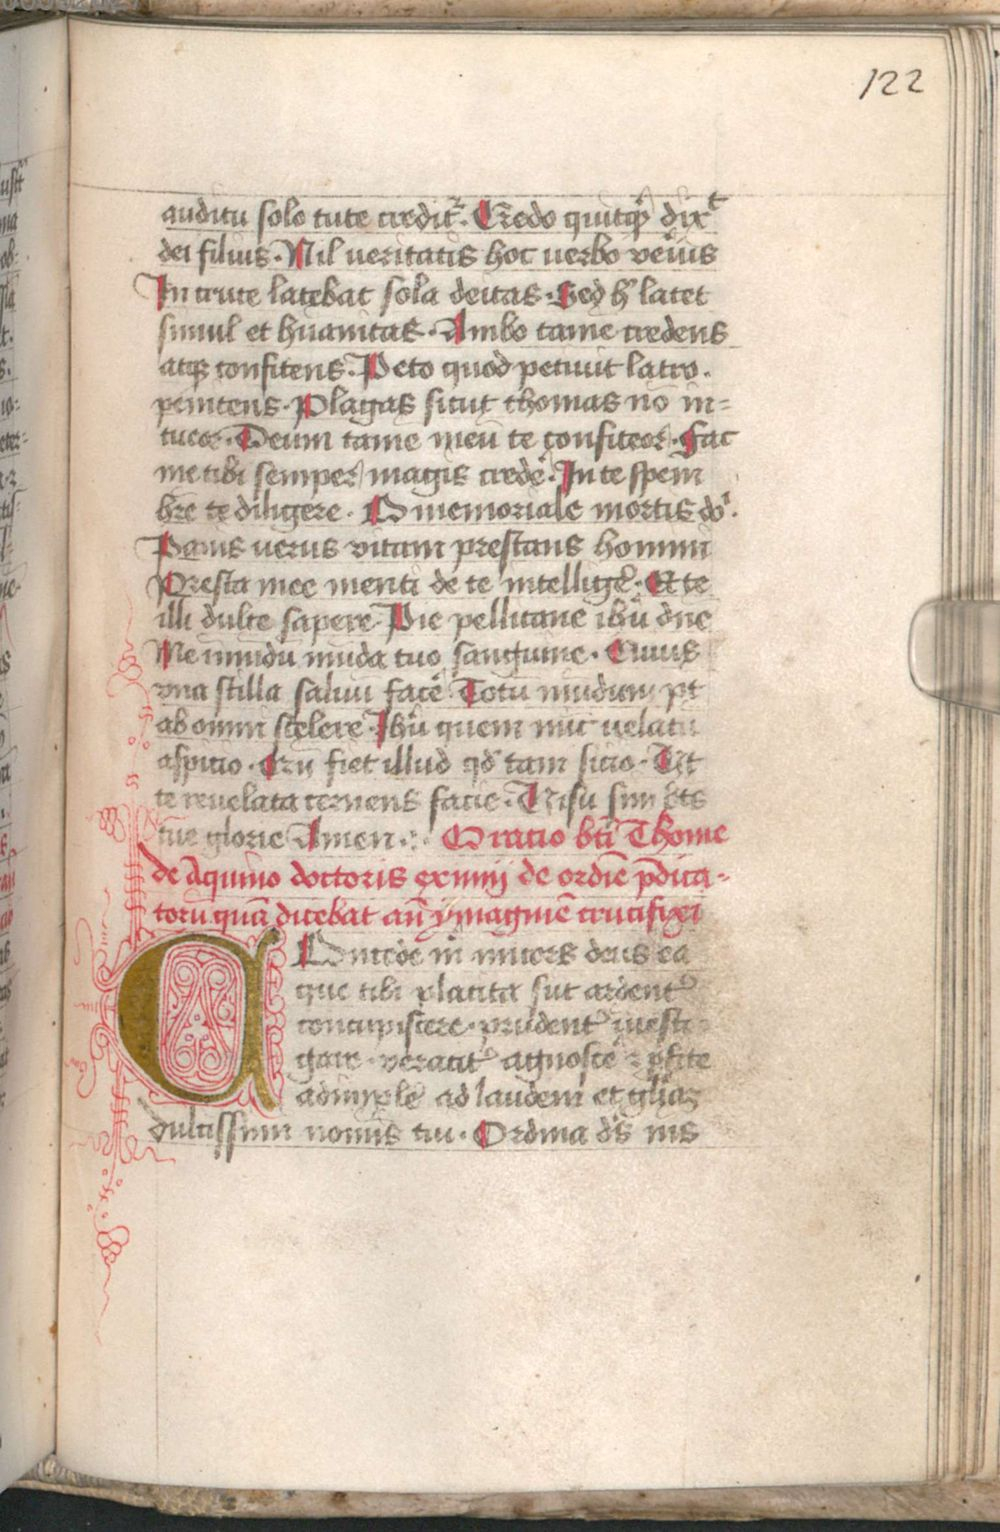 122
auditu solo tute credit᷑. Credo quitq̄ dixt
dei filius. Nil ueritatis hoc uerbo verius
In cruce latebat sola deitas. Sed h' latet
simul et huanitas. Ambo tamē credens
atqꝫ confitens. Peto quod petiuit latro.
penitens. Plagas sicut thomas nō in=
tueor. Deum tamē meū te confiteor. Fac
me tibi semper magis credē. In te spem
hr̄e te diligere. O memoriale mortis dō.
Panis uerus vitam prestans homini
Presta mee menti de te intelligē. Et te
illi dulce sapere. Pie pellicane ihū dn̄e
Me inmūdū mūda tuo sanguine. Cuius
vna stilla saluū facē Totū mūdum pt
ab omni scelere. Ihū quem nūc uelatū
aspicio. Crū fiet illud qd̄ tam sicio. Ut
te reuelata cernens facie. Uisu sim bt̄s
tue glorie Amen. Oratio bt̄i Thome
de Aquino doctoris eximij de ordīe p̄dica-
torū quā dicebat an̄ ymaginē crucifixi
COncede m̄ mīcors deus ea
que tibi placita sūt ardent᷑
concupiscere. prudent᷑ īuesti
gare. veracit᷑ agnoscē ⁊ pfc̄te
adimplē ad laudem et gl̄iaꝫ
dulcissimi nomīs tui. Ordina ds̄ ms